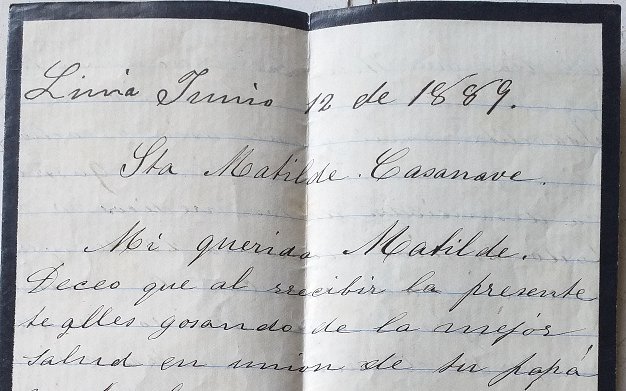 Lima Junio 12 de 1889.
Sta Matilde Casanave.
Mi querida Matilde.
Deceo que al rrecibir la presente
te alles gosando de la mejor
salud en union de tu papá